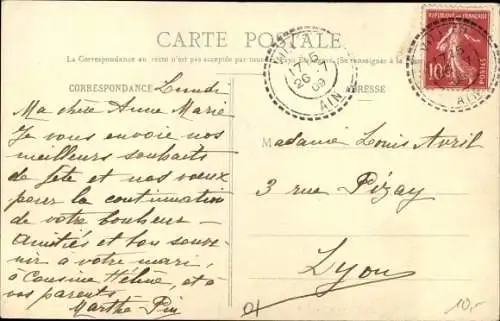 CARTE POSTALE
La Correspondance au recto n'est pas acceptée par tous les pays Étrangers (Se renseigner à la
CORRESPONDANCE
ADRESSE
RÉPUBLIQUE FRANÇAISE
10
POSTES
17-15
26-7
09
AIN
AIN
Lundi
Ma chère Anne Marie
Je vous envoie nos
meilleurs souhaits
de fete et nos voeux
pour la continuation
de votre bonheur -
Amitiés et bon souve-
nir à votre mari,
à cousine Hélène, et à
vos parents.
Marthe
Madame Louis Avril
3 rue Pizay
Lyon
10,-